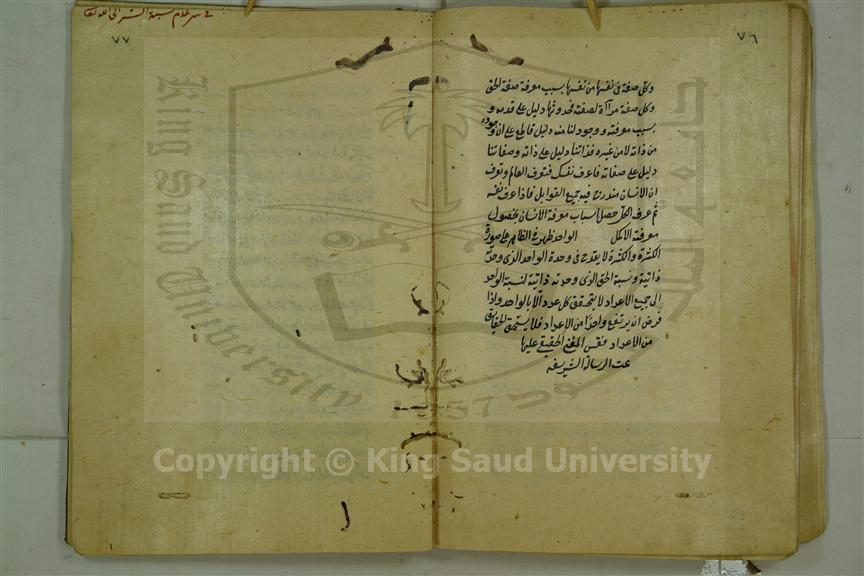 ٧٦
وكل صفة في نفسها من نفسها بسبب معرفة صفة الحق
وكل صفة مرآة لصفة فحدوثها دليل على قدمه و
بسبب معرفته ووجود لنا منه دليل قاطع على ان وجوده
من ذاته لا من غيره فذاتنا دليل على ذاته وصفاتنا
دليل على صفاته فاعرف نفسك فتعرف العالم وتعرف
ان الانسان مندرج فيه جميع القوابل فاذا عرف نفسه
ثم عرف الكل حصل اسباب معرفة الانسان بحصول
معرفة الاكمل الواحد ظهر في الظاهر على صورة
الكثرة والكثرة لا يقدح في وحدة الواحد الذي وحدته
ذاتية ونسبة الحق الذي وحدته ذاتية لنسبة الواحد
الى جميع الاعداد لا يتحقق كل عدد الا بالواحد واذا
فرض ان يرتفع واحدا من الاعداد فلا يستحق الحقايق
من الاعداد فقس المعنى الحقيقي عليها
تمت الرسالة الشريفه
٧٧
في سر عدم نسبة الشر الى الله تعا
King Saud University
جامعة الملك سعود
1957
Copyright © King Saud University